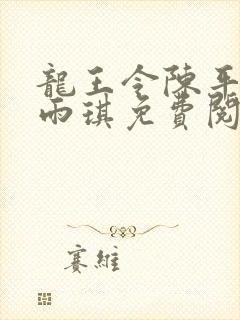 龍王令陳平
雨琪免費閱
賽維